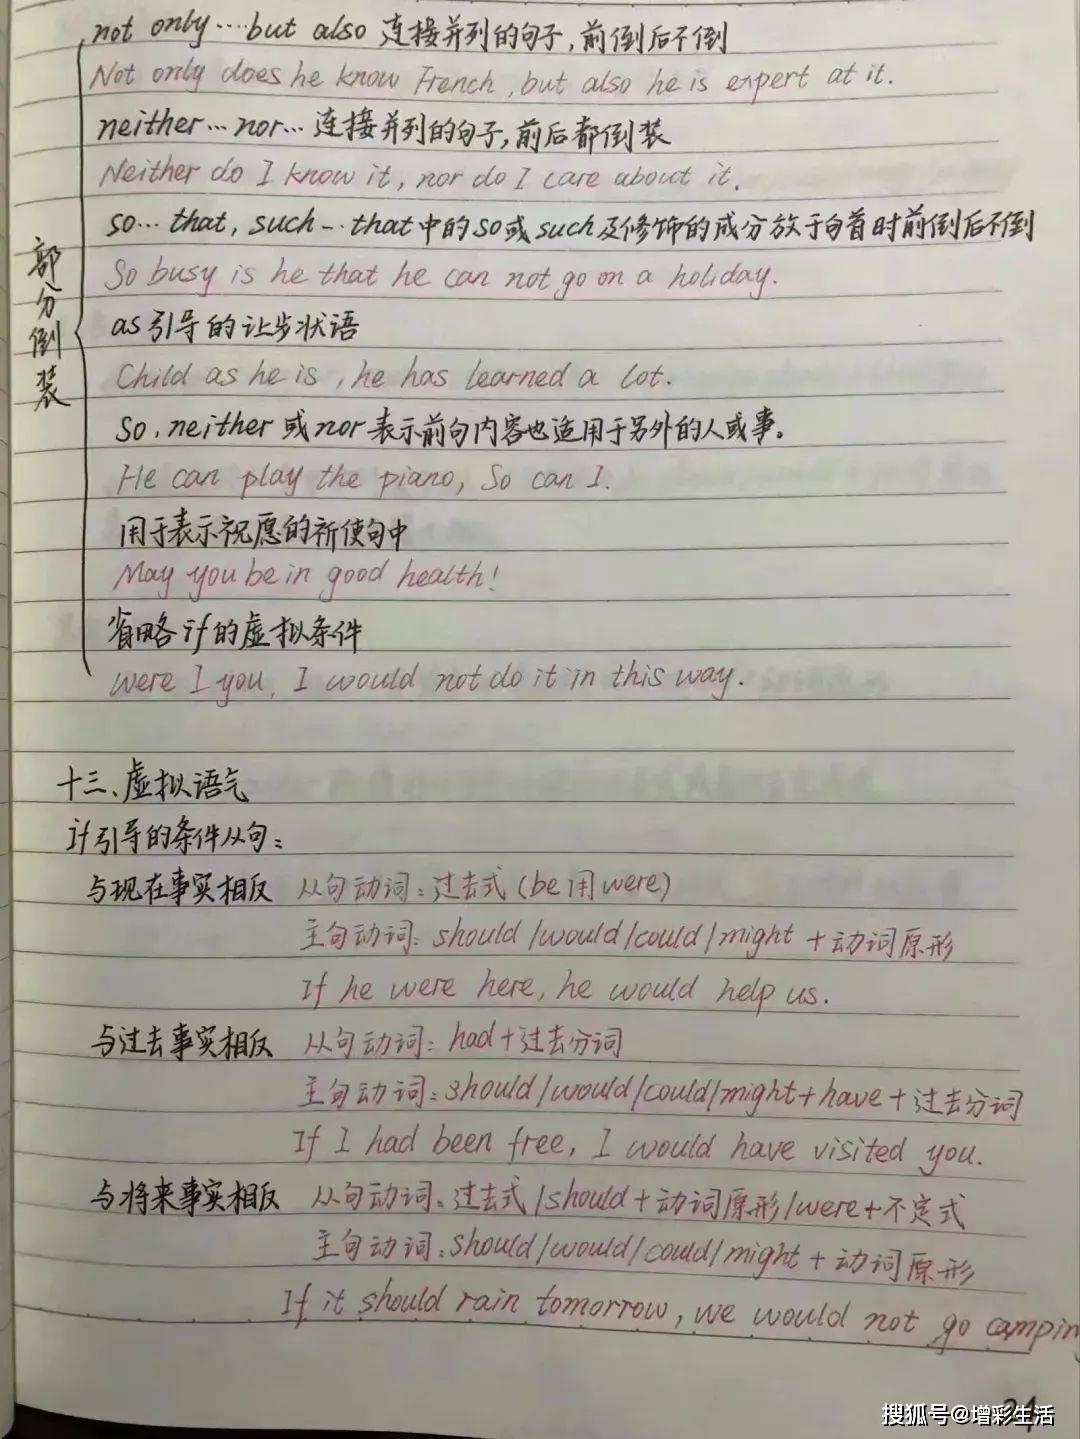 not only····but also 连接并列的句子,前倒后不倒
Not only does he know French, but also he is expert at it.
neither···nor··· 连接并列的句子,前后都倒装
Neither do I know it, nor do I care about it.
so··· that, such ··· that中的so或such及修饰的成分放于句首时前倒后不倒
So busy is he that he can not go on a holiday.
部分倒装
as引导的让步状语
Child as he is, he has learned a lot.
So, neither或nor表示前句内容也适用于另外的人或事。
He can play the piano, So can I.
用于表示祝愿的祈使句中
May you be in good health!
省略if的虚拟条件
were I you, I would not do it in this way.
十三、虚拟语气
if引导的条件从句:
与现在事实相反 从句动词:过去式(be用were)
主句动词:should/would/could/might+动词原形
If he were here, he would help us.
与过去事实相反 从句动词:had+过去分词
主句动词:should/would/could/might+have+过去分词
If I had been free, I would have visited you.
与将来事实相反 从句动词:过去式/should+动词原形/were+不定式
主句动词:should/would/could/might+动词原形
If it should rain tomorrow, we would not go camping
24
搜狐号@增彩生活